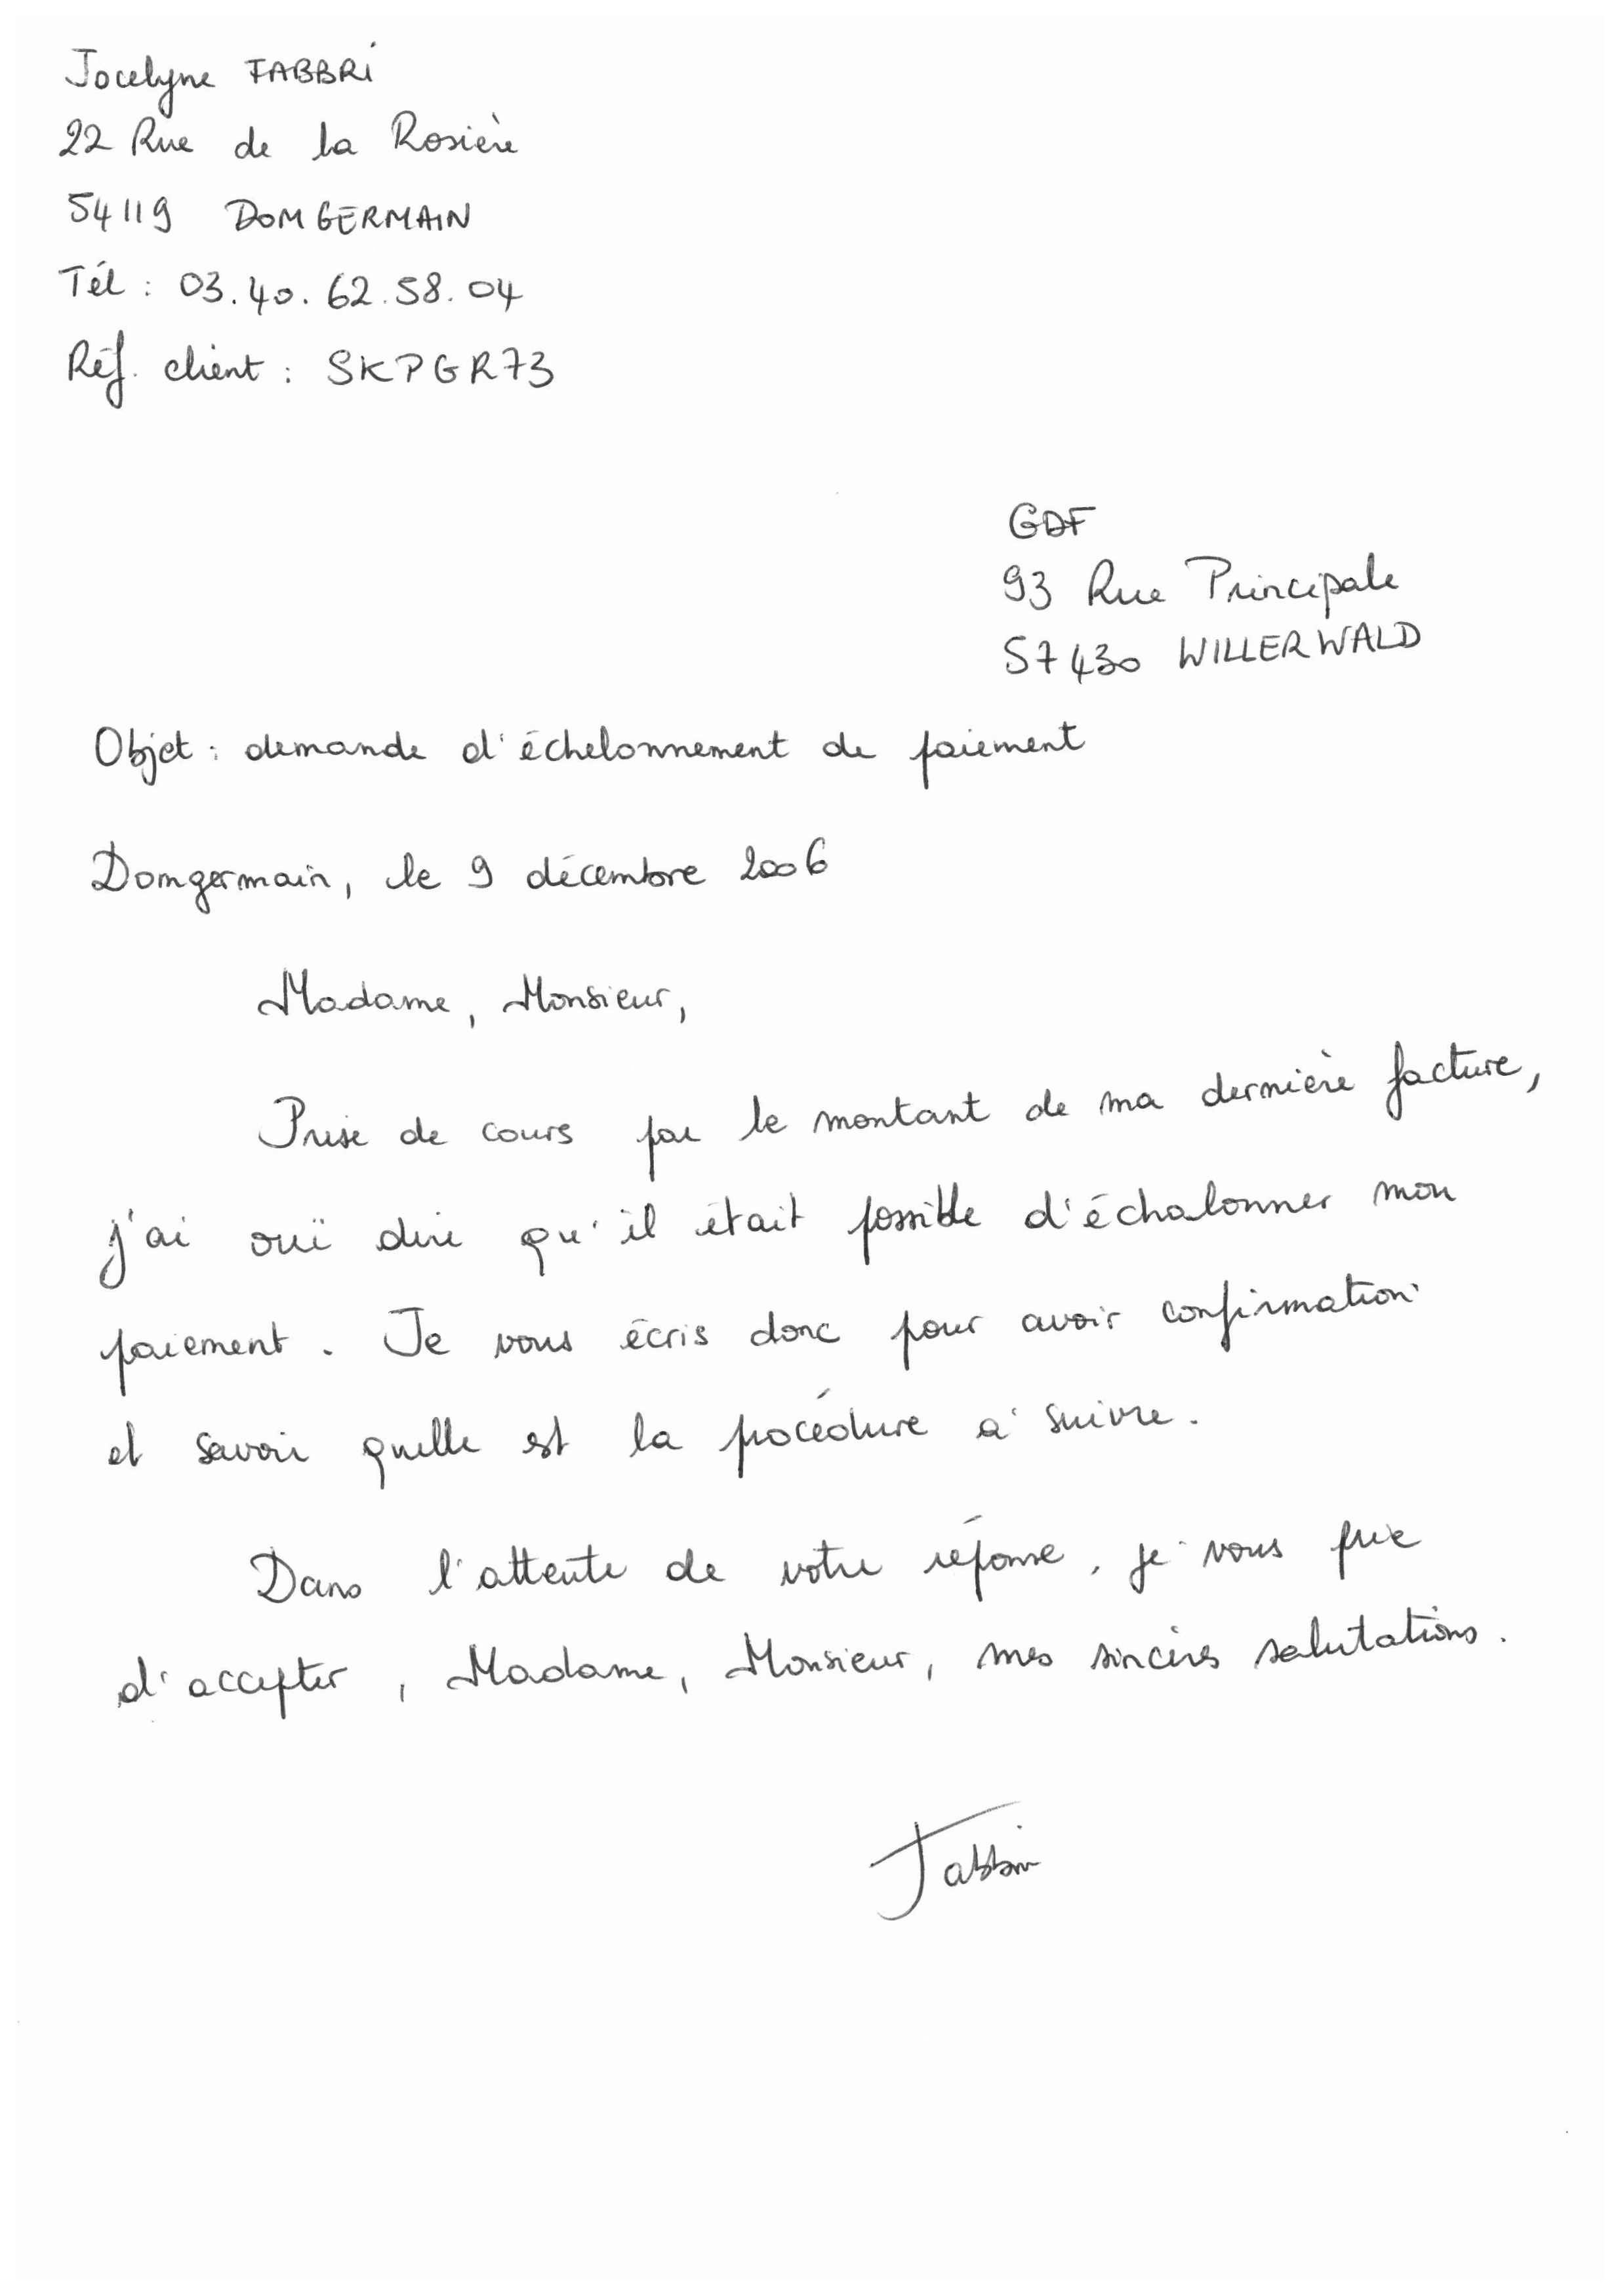 Jocelyne FABBRI
22 Rue de la Rosière
54119 DOMGERMAIN
Tél : 03.40.62.58.04
Réf. client : SKPGR73
GDF
93 Rue Principale
57430 WILLERWALD
Objet : demande d'échelonnement de paiement
Domgermain, le 9 décembre 2006
Madame, Monsieur,
Prise de cours par le montant de ma dernière facture,
j'ai ouï dire qu'il était possible d'échalonner mon
paiement. Je vous écris donc pour avoir confirmation
et savoir quelle est la procédure à suivre.
Dans l'attente de votre réponse, je vous prie
d'accepter, Madame, Monsieur, mes sincères salutations.
Fabbri